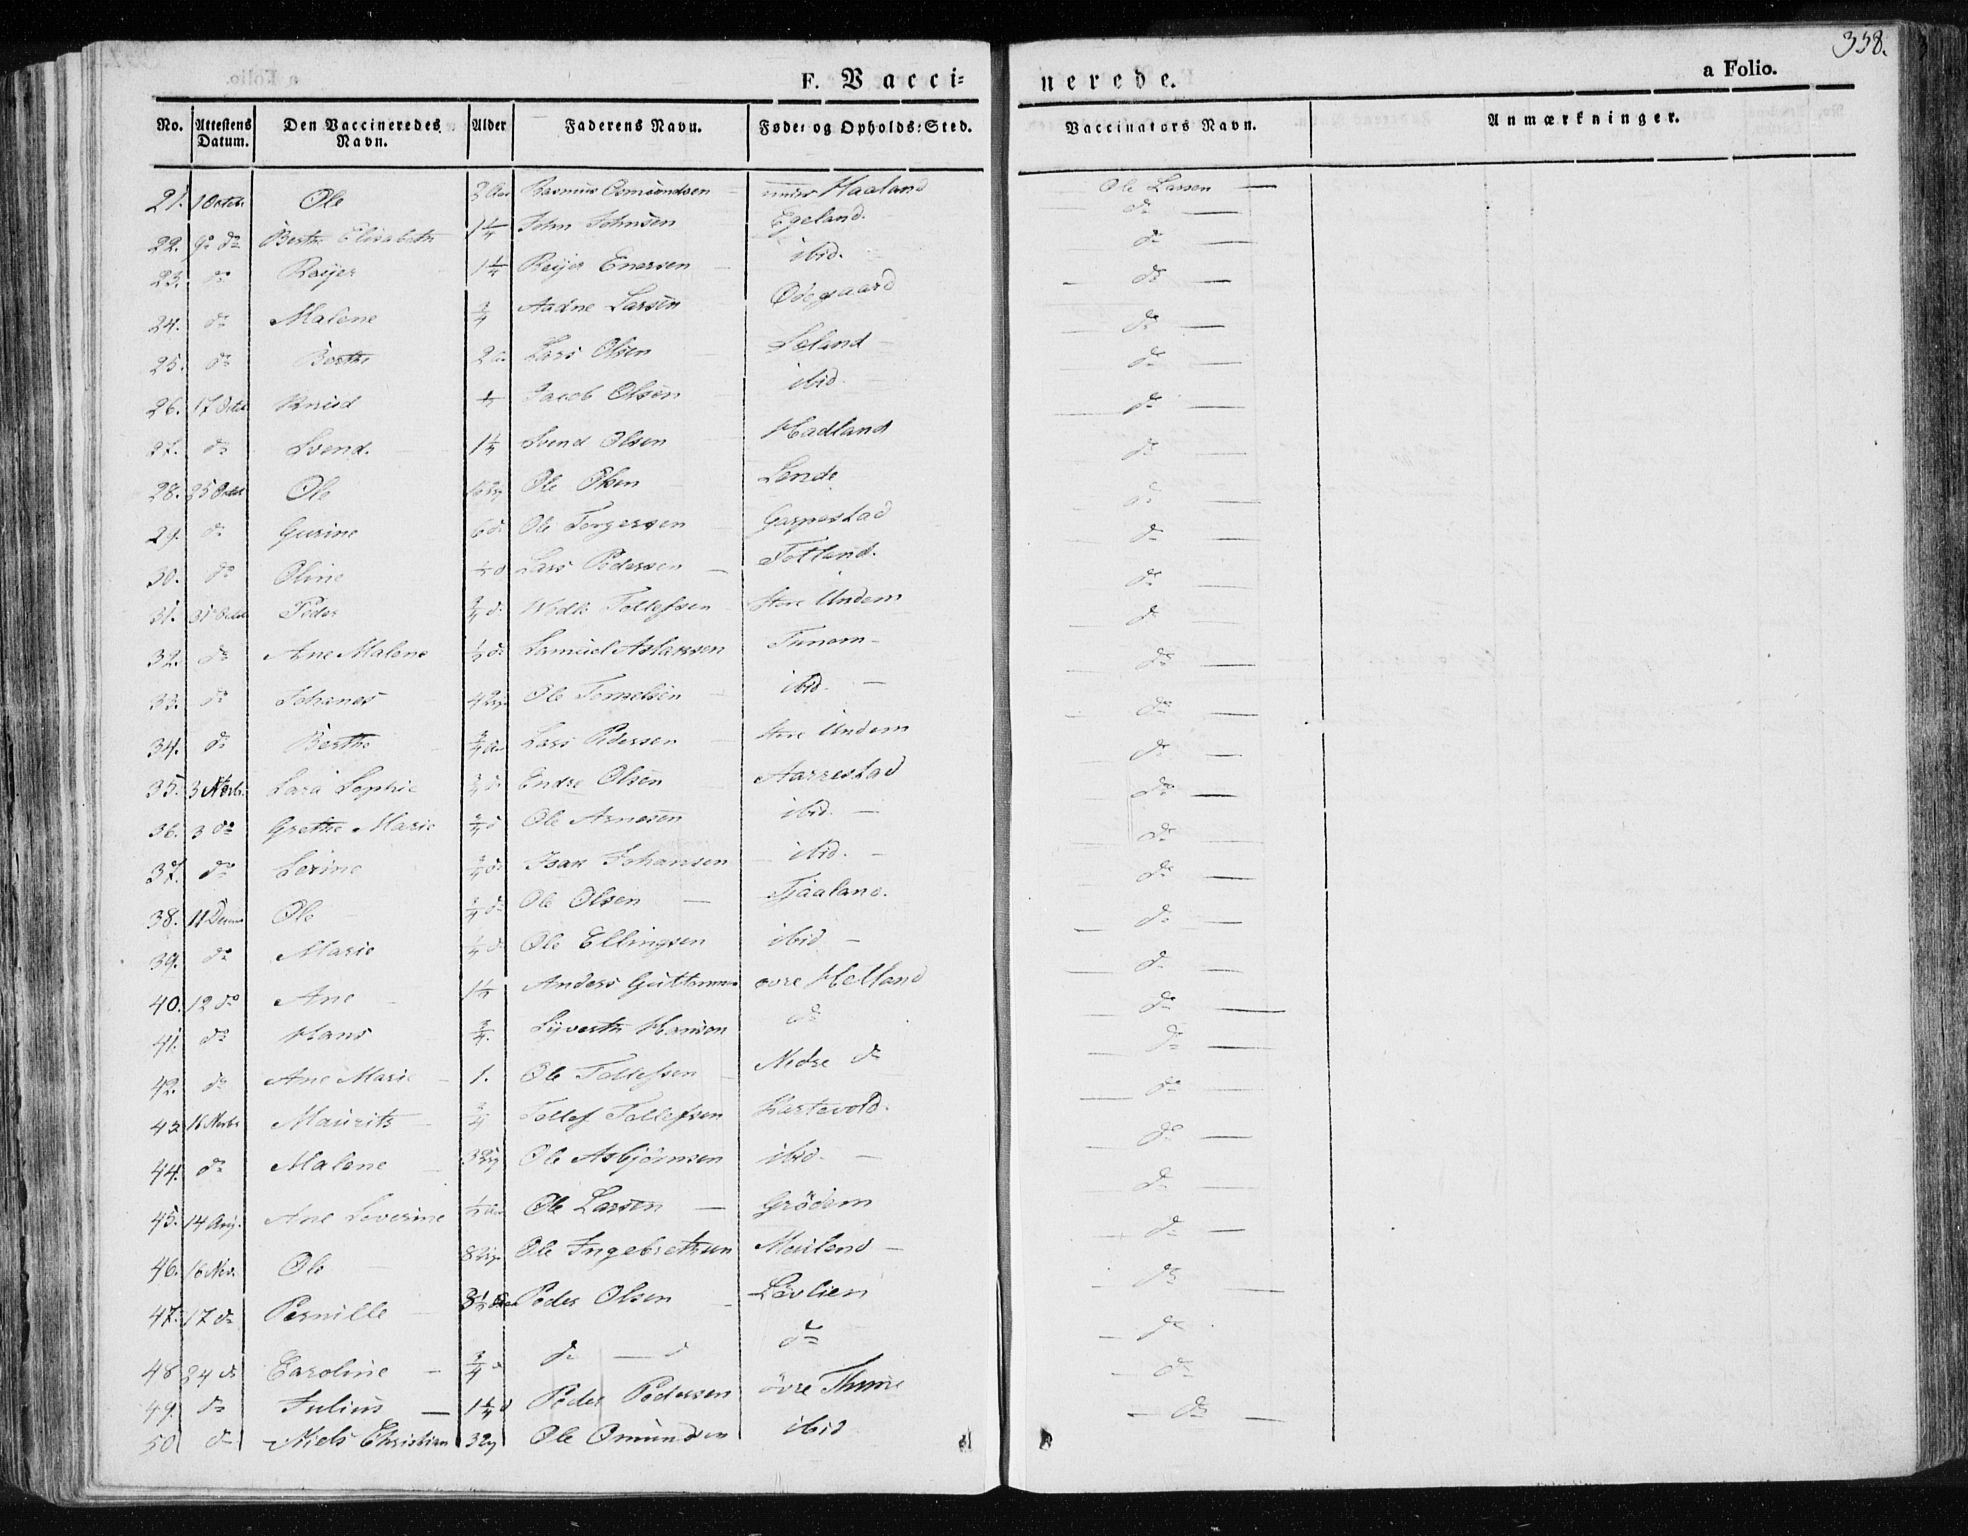 338.
F. Vacci= nerede. a Folio.
No. Attestens Datum. Den Vaccineredes Navn. Alder Faderens Navn. Føde= og Opholds=Sted. Vaccinators Navn. Anmærkninger.
21. 1 Octob. Ole Rasmus Osmundsen Haaland Ole Larsen —
22. 9de do Berthe Elisabeth 1 1/4 John Johnsen Egeland. do —
23. do Reijer 1 1/4 Reijer Enersen — ibid. do —
24. do Malene 3/4 Aadne Larsen Ødegaard do —
25. do Berthe 2 Lars Olsen Leland do —
26. 17 Octob Knud Jacob Olsen ibid. do —
27. do Svend. Svend Olsen Hadland do —
28. 25 Octob Ole Ole Olsen Lende do —
29. do Gurine 6 do Ole Torgersen Gaspestad do —
30. do Oline Lars Pedersen — Totland. do —
31. 31 Octob Peder 3/4 do Tollefsen Store Undem do —
32. do Ane Malene do Samuel Aslaksen Tunem — do —
33. do Johanes Ole ibid. — do —
34. do Berthe Lars Pedersen — Store Undem do —
35. 3 Novb. Lava Sophie Endre Olsen Aarrestad do —
36. 3 do Grethe Marie 3/4 do Ole Arnesen ibid. — do —
37. do Serine do Isak Johansen ibid. — do —
38. 11 Ole do Ole Olsen — Tjaaland. do —
39. do Marie do Ole Ellingsen ibid — do —
40. 12 do Ane Anders Guttormsen øvre Helland do —
41. do Hans 3/4. Syvert Hansen do do —
42. do Ane Marie — 1. Ole Tollefsen — Nedre do do —
43 16 Novbr Maurits 3/4 Tollef Tollefsen Kartevold. do —
44. do Malene Ole Asbjörnsen ibid. — do —
45. 14 Aug. Ane Severine Ole Larsen — Grödem do —
46. 16 Nov. Ole Ole Ingebretsen — do —
47. 17 do Pernille Peder Olsen — Lövlien do —
48 24 do Caroline — 3/4 do do — do do do
49. do Julius — 1 1/4 do Peder Pedersen øvre do
50 do Niels Christian Ole Omundsen ibid do —